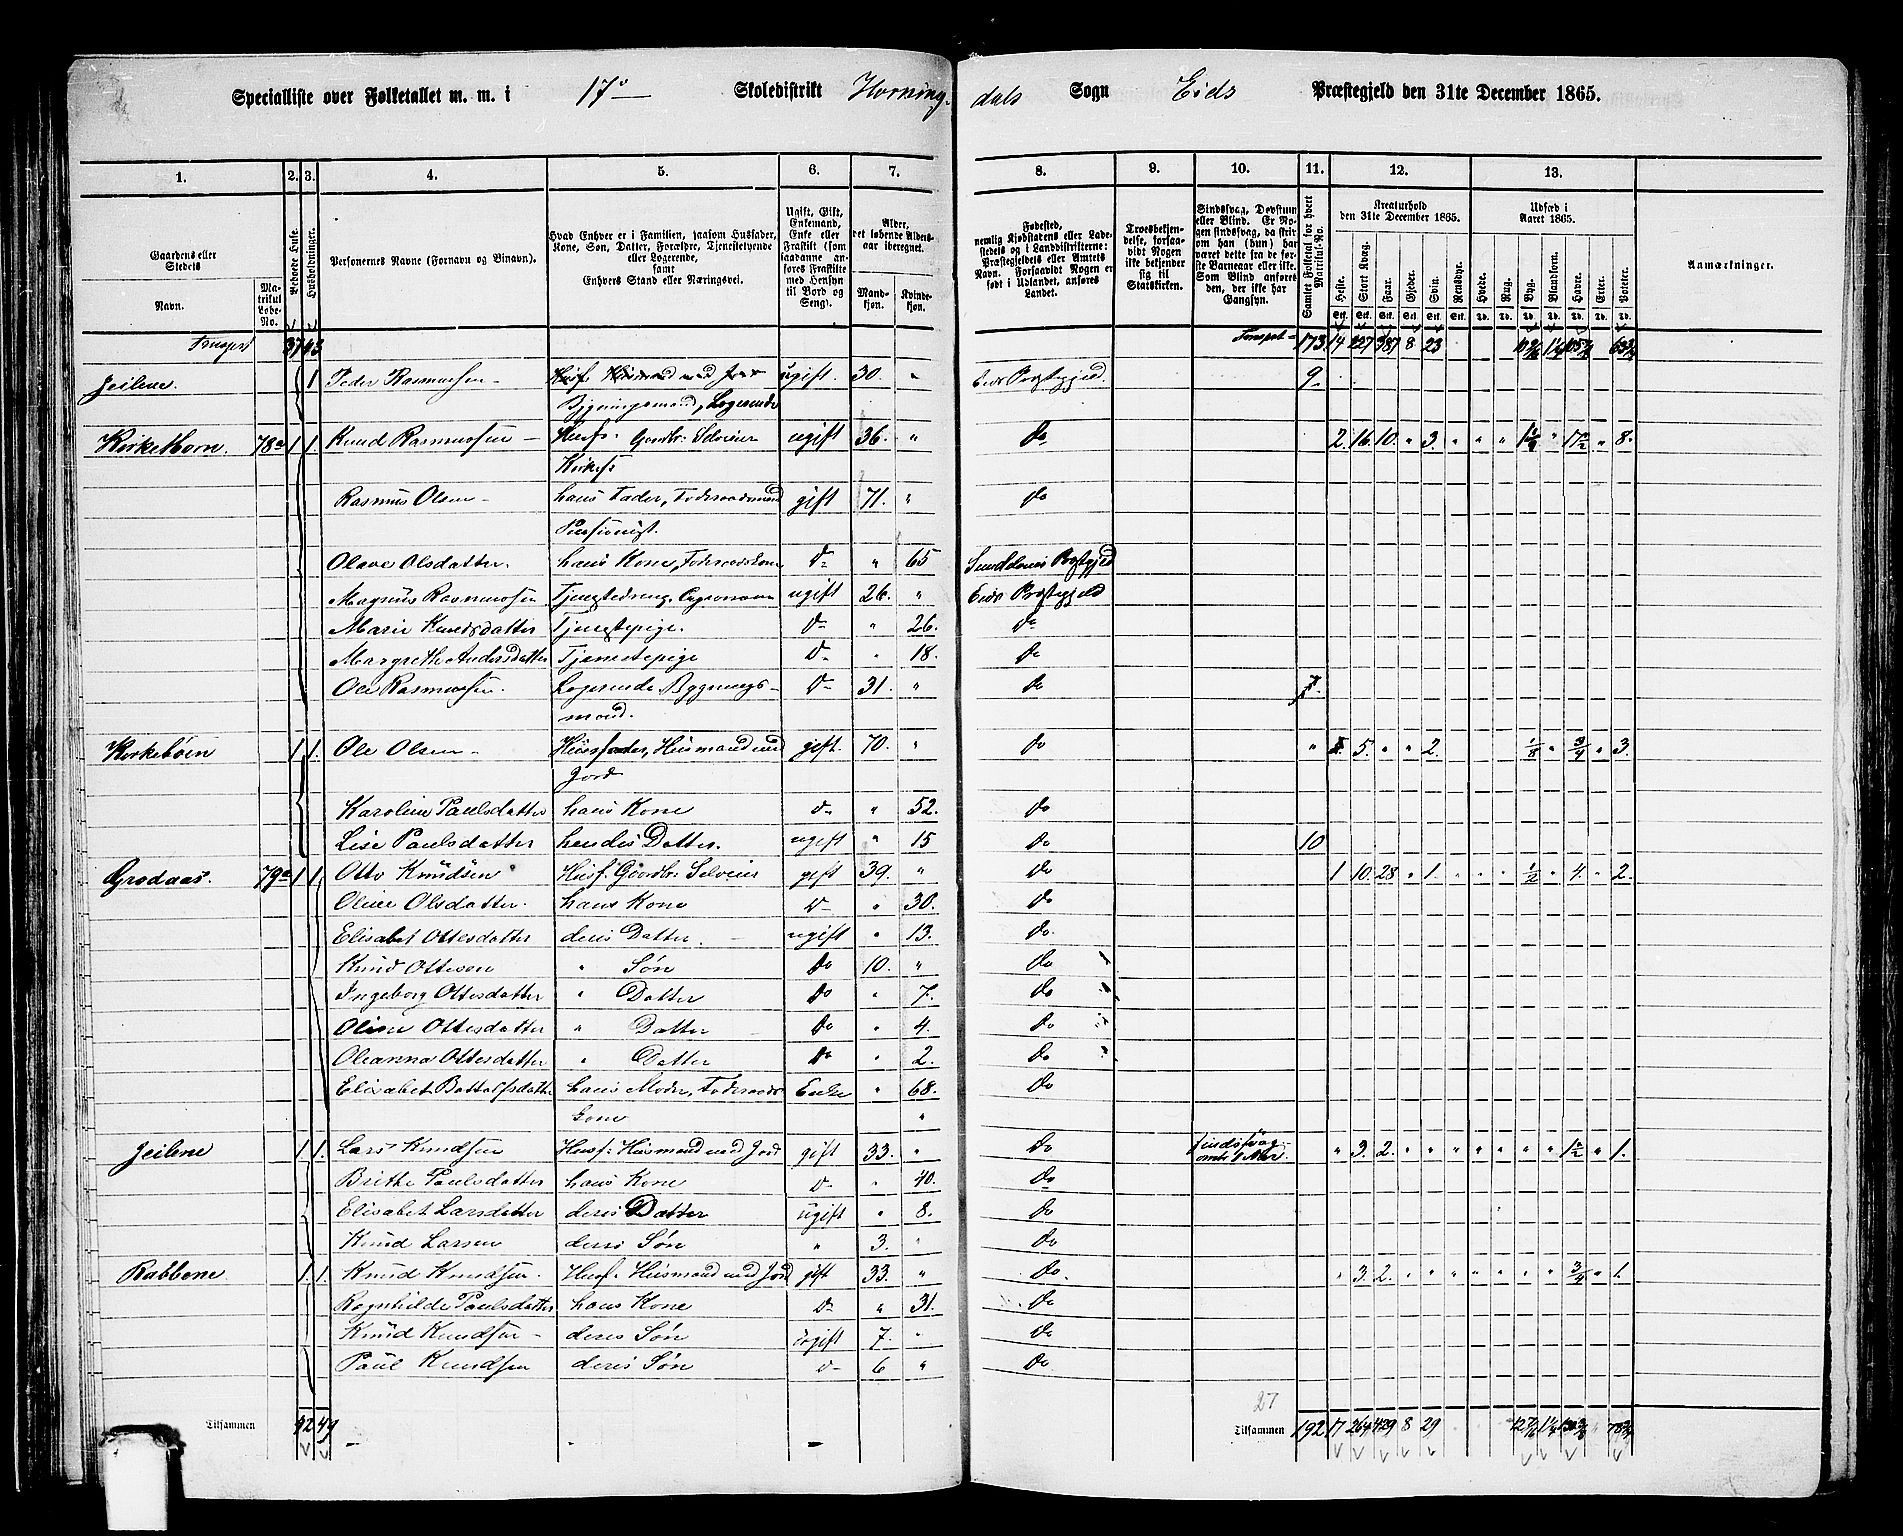 Specialliste over Folketallet m. m. i 17de Skoledistrikt Horningdals Sogn Eids Præstegjeld den 31te December 1865.
1. 2. 3. 4. 5. 6. 7. 8. 9. 10. 11. 12. 13.
Gaardens eller Stedets Navn. Matrikul Løbe-No. Beboede Huse. Husholdninger. Personernes Navne (Fornavn og Binavn).
Hvad Enhver er i Familien, saasom Husfader, Kone, Søn, Datter, Forældre, Tjenestetyende eller Logerende, samt Enhvers Stand eller Næringsvei.
Ugift, Gift, Enkemand, Enke eller Fraskilt (som saadanne anføres Fraskilte med Hensyn til Bord og Seng).
Alder, det løbende Aldersaar iberegnet. Mandkjøn. Kvindekjøn.
Fødested, nemlig Kjøbstadens eller Ladestedets eller i Landdistrikterne: Præstegjeldets eller Amtets Navn. Forsaavidt Nogen er født i Udlandet, anføres Landet.
Troesbekjendelse, forsaavidt Nogen ikke bekjender sig til Statskirken.
Sindssvag, Døvstum eller Blind. Er Nogen sindssvag, da skriv om han (hun) har været dette fra de første Barneaar eller ikke. Som Blind anføres den, der ikke har Gangsyn.
Samlet Folketal for hvert Matrikul-No.
Kreaturhold den 31te December 1865. Heste. Stort Kvæg. Faar. Gjeder. Svin. Rensdyr.
Udsæd i Aaret 1865. Hvede. Rug. Byg. Blandkorn. Havre. Erter. Poteter.
Anmærkninger.
37 43 173 14 227 387 8 23
Jeilene. 1 Peder Rasmussen ugift. 30. " Eids Prstegjeld. 9
Bygningsmand, Logerende
78a 1 1 Knud Rasmussen Husf: Gaardbr: Selveier ugift 36. " do 2. 16. 10. " 3. " " " 8.
Rasmus Olsen hans Fader, gift 71. " do
Olave Olsdatter. hans Kone, do " 65
Magnus Rasmussen Tjenstedreng, ugift 26. " Eids Prstegjeld
Marie Knudsdatter Tjenstepige. do " 26. do
Margrethe Andersdatter Tjenestepige do " 18. do
Ole Rasmussen. Logerende Bygningsmand. do 31. " do 7.
Kirkebøen 1 1. Ole Olsen Husfader, Husmand med Jord gift. 70. " do " 5. " " 2. 1/8 " 3/4 " 3.
Karoline Paulsdatter hans Kone do " 52. do
Lise Paulsdatter hendes Datter. ugift " 15 do 10
Grodaas. 79a 1 1 Otto Knudsen Husf: Gaardbr: Selveier gift 39. " do 1 10. 28 " 1. " " " 1/2 " 4. " 2.
Oline Olsdatter. hans Kone do " 30. do
Elisabet Ottesdatter deres Datter. ugift " 13. do
Knud Ottesen " Søn do 10. " do
Ingeborg Ottesdatter " Datter do " 7. do
Oline Ottesdatter " Datter do " 4. do
Oleanna Ottesdatter " Datter do " 2. do
Elisabet hans Moder, Enke " 68. do
Jeilene 1 1. Lars Knudsen Husf: Husmand med Jord gift 33. " do " 3. 2. " " " " " " " " 1.
Brithe Paulsdatter hans Kone do " 40. do
Elisabet Larsdatter deres Datter ugift " 8. do
Knud Larsen deres Søn " 3. " do
Rabbene 1. 1. Knud Knudsen. Husf: Husmand med Jord gift 33. " do. " 3. 2. " " " " " " " 3/4 " 1.
Ragnhilde Paulsdatter hans Kone do " 31. do
Knud Knudsen deres Søn ugift 7. " do
Paul Knudsen deres Søn do 6 " do
27
Tilsammen 42 49 Tilsammen 192 17 8 29